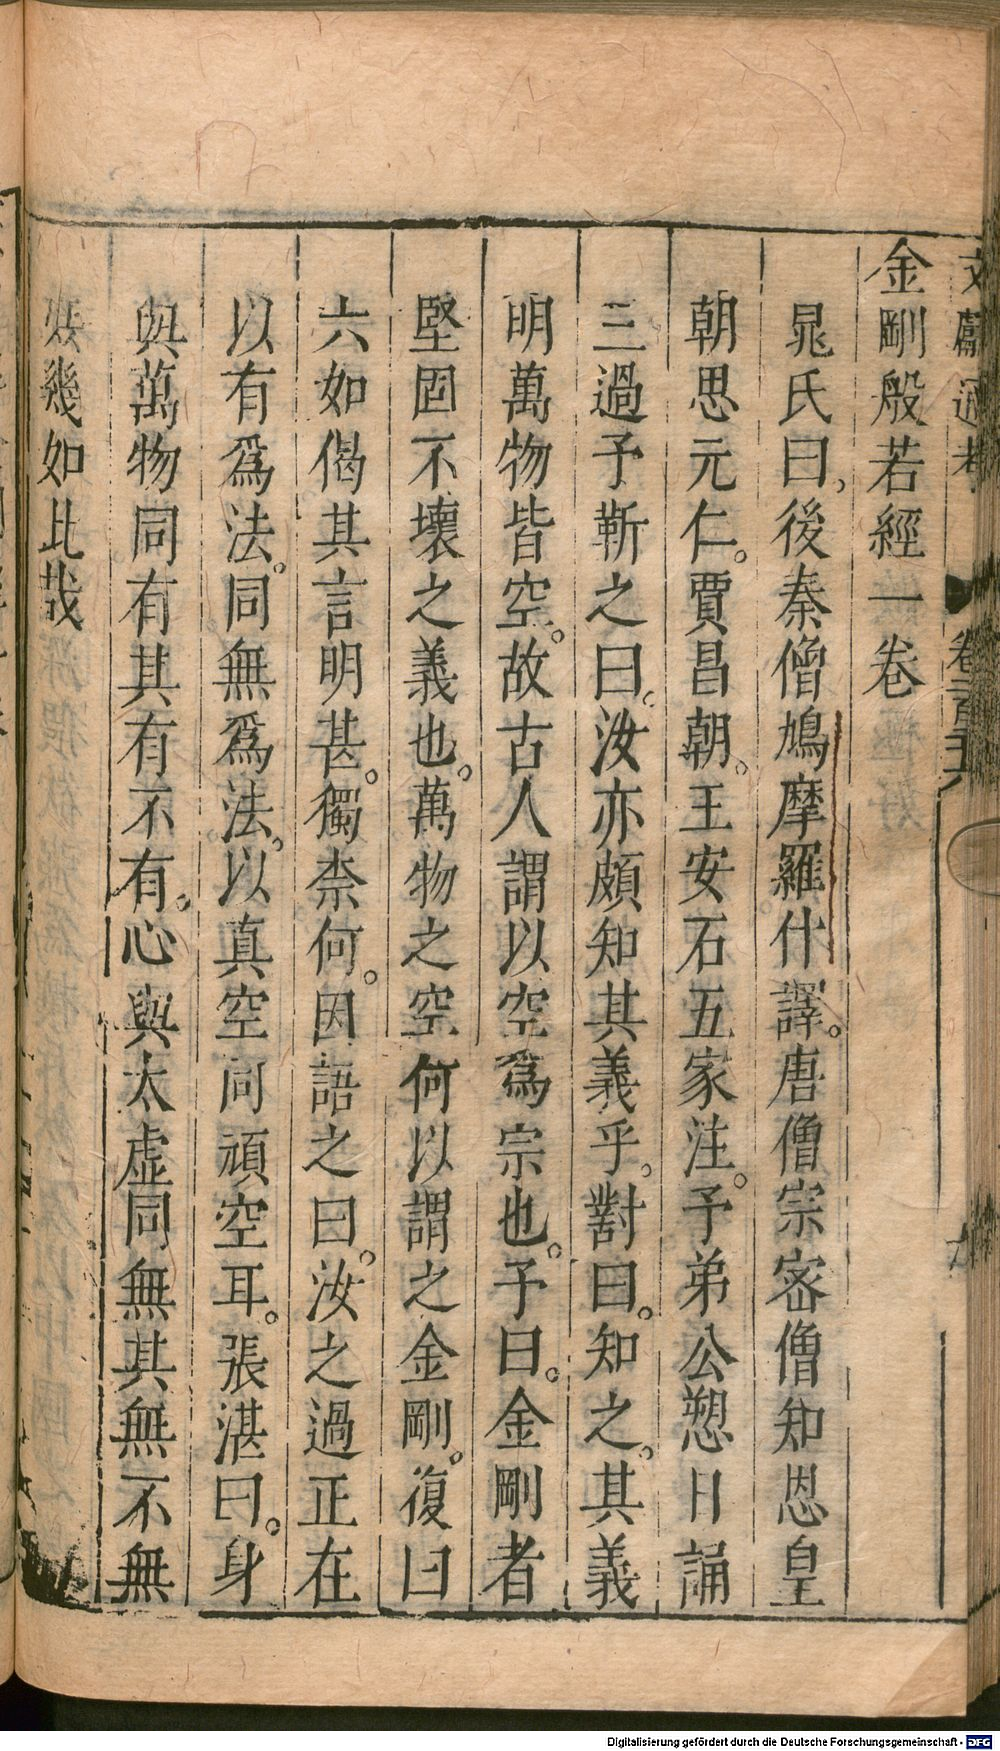 文獻通考 卷二百二十六
金剛般若經一卷
晁氏曰後秦僧鳩摩羅什譯。唐僧宗密僧知恩皇
朝思元仁。賈昌朝。王安石五家注。予弟公愬日誦
三過予靳之曰。汝亦頗知其義乎。對曰。知之。其義
明萬物皆空。故古人謂以空為宗也。予曰。金剛者
堅固不壞之義也。萬物之空何以謂之金剛。復曰
六如偈其言明甚。獨柰何。因語之曰。汝之過正在
以有為法。同無為法。以真空同頑空耳。張湛曰。身
與萬物同有其有不有。心與太虛同無其無不無
庶幾如此哉
Digitalisierung gefördert durch die Deutsche Forschungsgemeinschaft - DFG